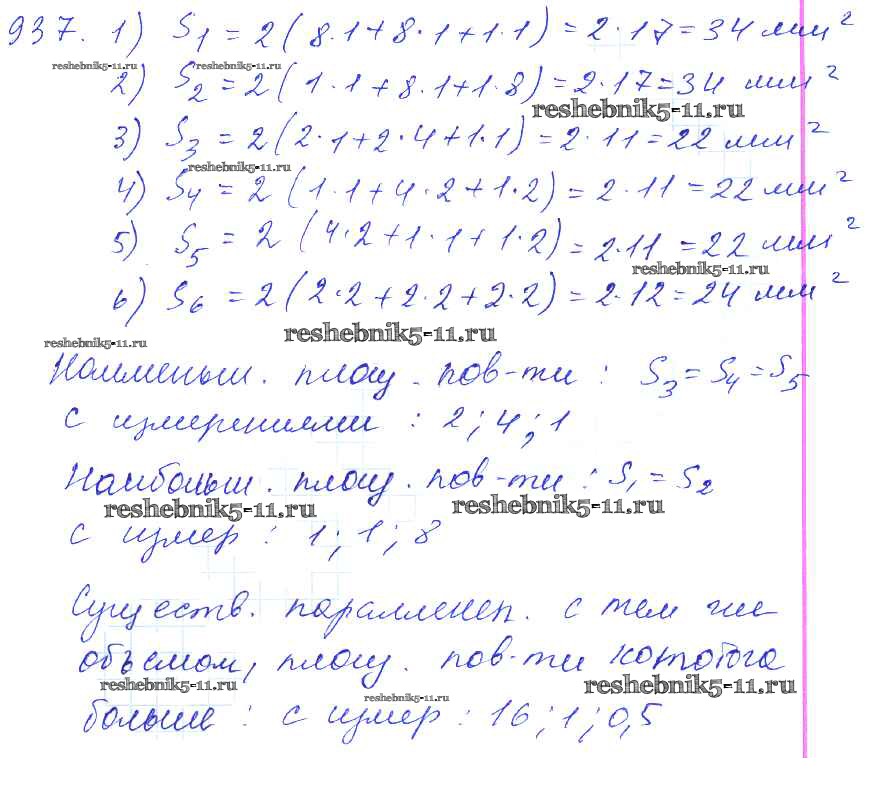 937. 1) S1 = 2(8·1+8·1+1·1) = 2·17=34 мм²
reshebnik5-11.ru reshebnik5-11.ru
2) S2 = 2(1·1+8·1+1·8) = 2·17=34 мм²
reshebnik5-11.ru
3) S3 = 2(2·1+2·4+1·1) = 2·11=22 мм²
reshebnik5-11.ru
4) S4 = 2(1·1+4·2+1·2) = 2·11=22 мм²
5) S5 = 2(4·2+1·1+1·2) = 2·11=22 мм²
reshebnik5-11.ru
6) S6 = 2(2·2+2·2+2·2) = 2·12=24 мм²
reshebnik5-11.ru
reshebnik5-11.ru
Наименьш. площ. пов-ти : S3=S4=S5
с измерениями : 2;4;1
Наибольш. площ. пов-ти : S1=S2
reshebnik5-11.ru reshebnik5-11.ru
с измер : 1;1;8
Существ. параллелеп. с тем же
объемом, площ. пов-ти которого
reshebnik5-11.ru reshebnik5-11.ru
reshebnik5-11.ru
больше : с измер : 16;1;0,5